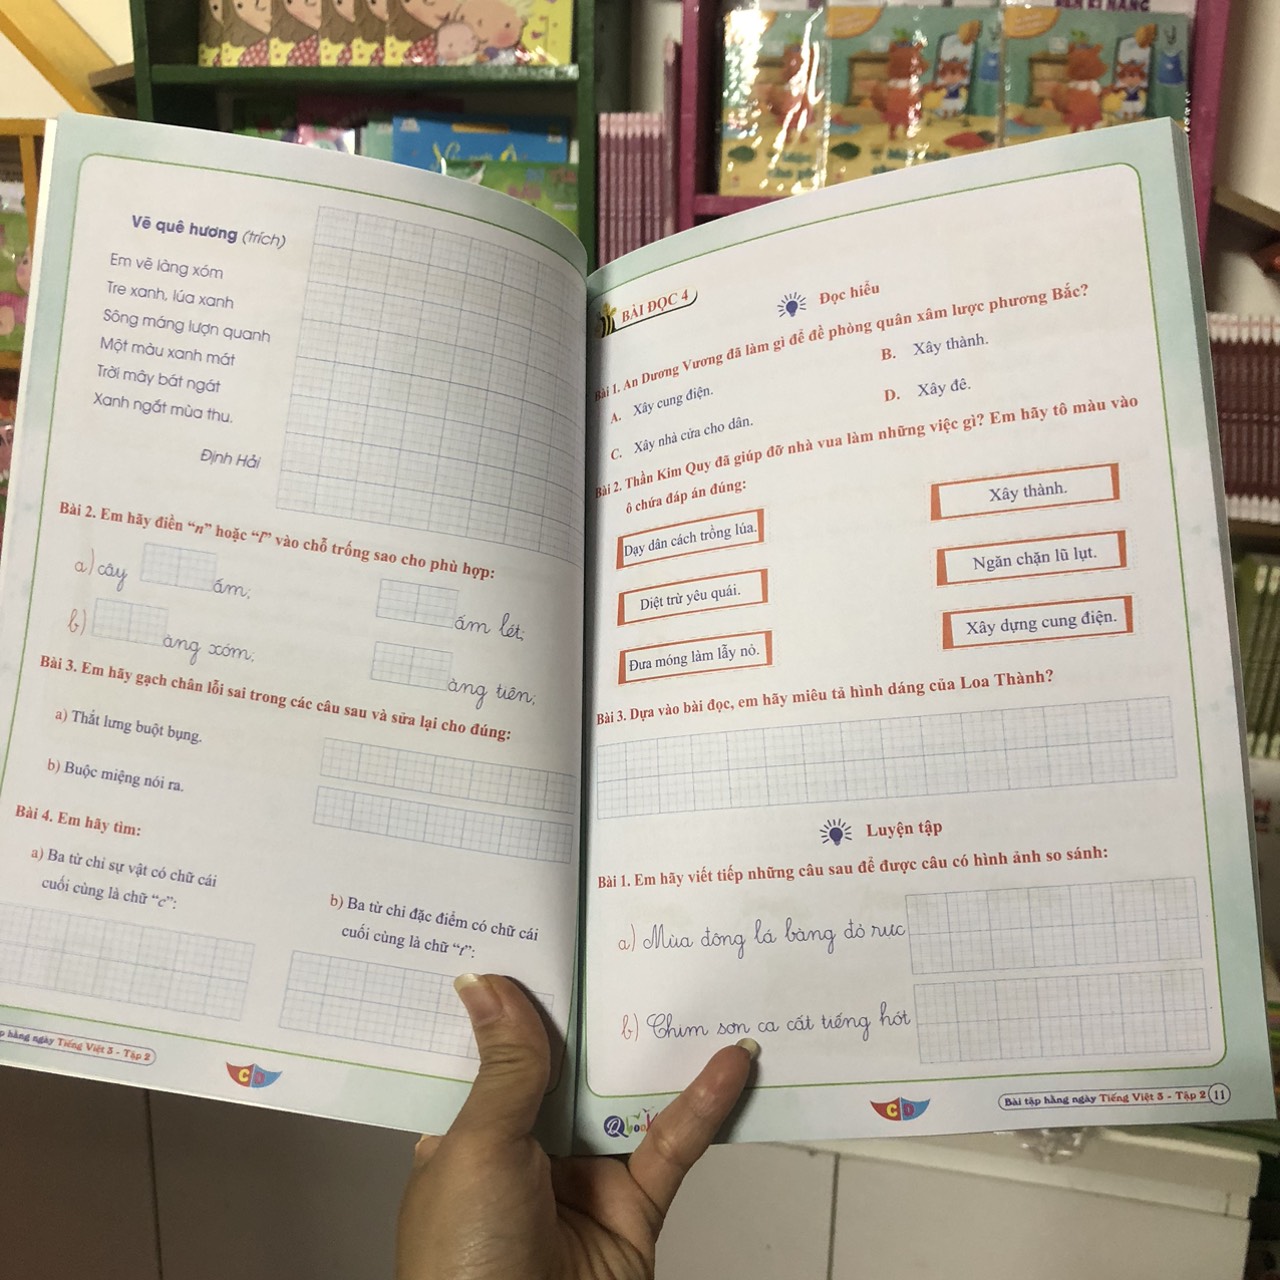 Vẽ quê hương (trích)
Em vẽ làng xóm
Tre xanh, lúa xanh
Sông máng lượn quanh
Một màu xanh mát
Trời mây bát ngát
Xanh ngắt mùa thu.
Định Hải
Bài 2. Em hãy điền “n” hoặc “l” vào chỗ trống sao cho phù hợp:
a) cây ấm; ấm lét;
b) àng xóm; àng tiên;
Bài 3. Em hãy gạch chân lỗi sai trong các câu sau và sửa lại cho đúng:
a) Thắt lưng buột bụng.
b) Buộc miệng nói ra.
Bài 4. Em hãy tìm:
a) Ba từ chỉ sự vật có chữ cái
cuối cùng là chữ “c”:
b) Ba từ chỉ đặc điểm có chữ cái
cuối cùng là chữ “t”:
hằng ngày Tiếng Việt 3 - Tập 2
CD
BÀI ĐỌC 4
Đọc hiểu
Bài 1. An Dương Vương đã làm gì để đề phòng quân xâm lược phương Bắc?
A. Xây cung điện. B. Xây thành.
C. Xây nhà cửa cho dân. D. Xây đê.
Bài 2. Thần Kim Quy đã giúp đỡ nhà vua làm những việc gì? Em hãy tô màu vào
ô chứa đáp án đúng:
Dạy dân cách trồng lúa. Xây thành.
Diệt trừ yêu quái. Ngăn chặn lũ lụt.
Đưa móng làm lẫy nỏ. Xây dựng cung điện.
Bài 3. Dựa vào bài đọc, em hãy miêu tả hình dáng của Loa Thành?
Luyện tập
Bài 1. Em hãy viết tiếp những câu sau để được câu có hình ảnh so sánh:
a) Mùa đông lá bàng đỏ rực
b) Chim sơn ca cất tiếng hót
CD
Bài tập hằng ngày Tiếng Việt 3 - Tập 2 11